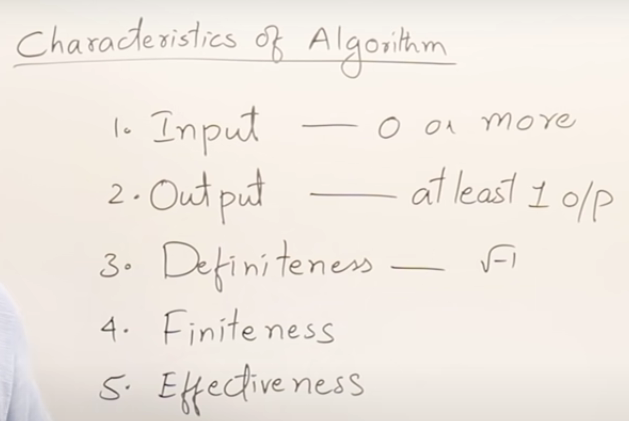 Characteristics of Algorithm
1. Input — 0 or more
2. Output — at least 1 o/p
3. Definiteness — √-1
4. Finiteness
5. Effectiveness